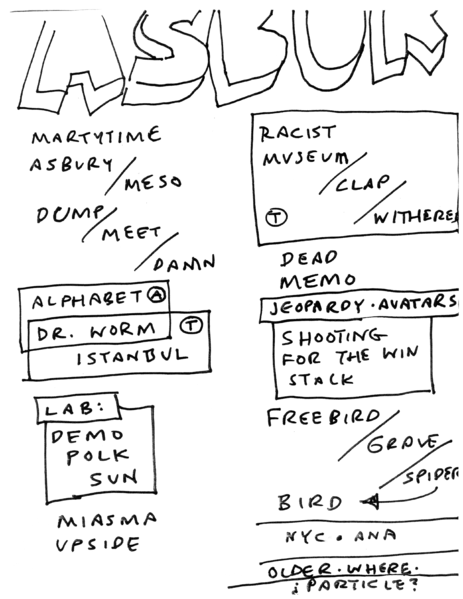 ASBUR
MARTYTIME
ASBURY/
MESO
DUMP/
MEET/
DAMN
ALPHABET Ⓐ
DR. WORM Ⓣ
ISTANBUL
LAB:
DEMO
POLK
SUN
MIASMA
UPSIDE
RACIST
MUSEUM/
CLAP/
Ⓣ WITHERE
DEAD
MEMO
JEOPARDY · AVATARS
SHOOTING
FOR THE WIN
STACK
FREEBIRD/
GROVE/
SPIDER
BIRD
NYC · ANA
OLDER · WHERE ·
¿PARTICLE?